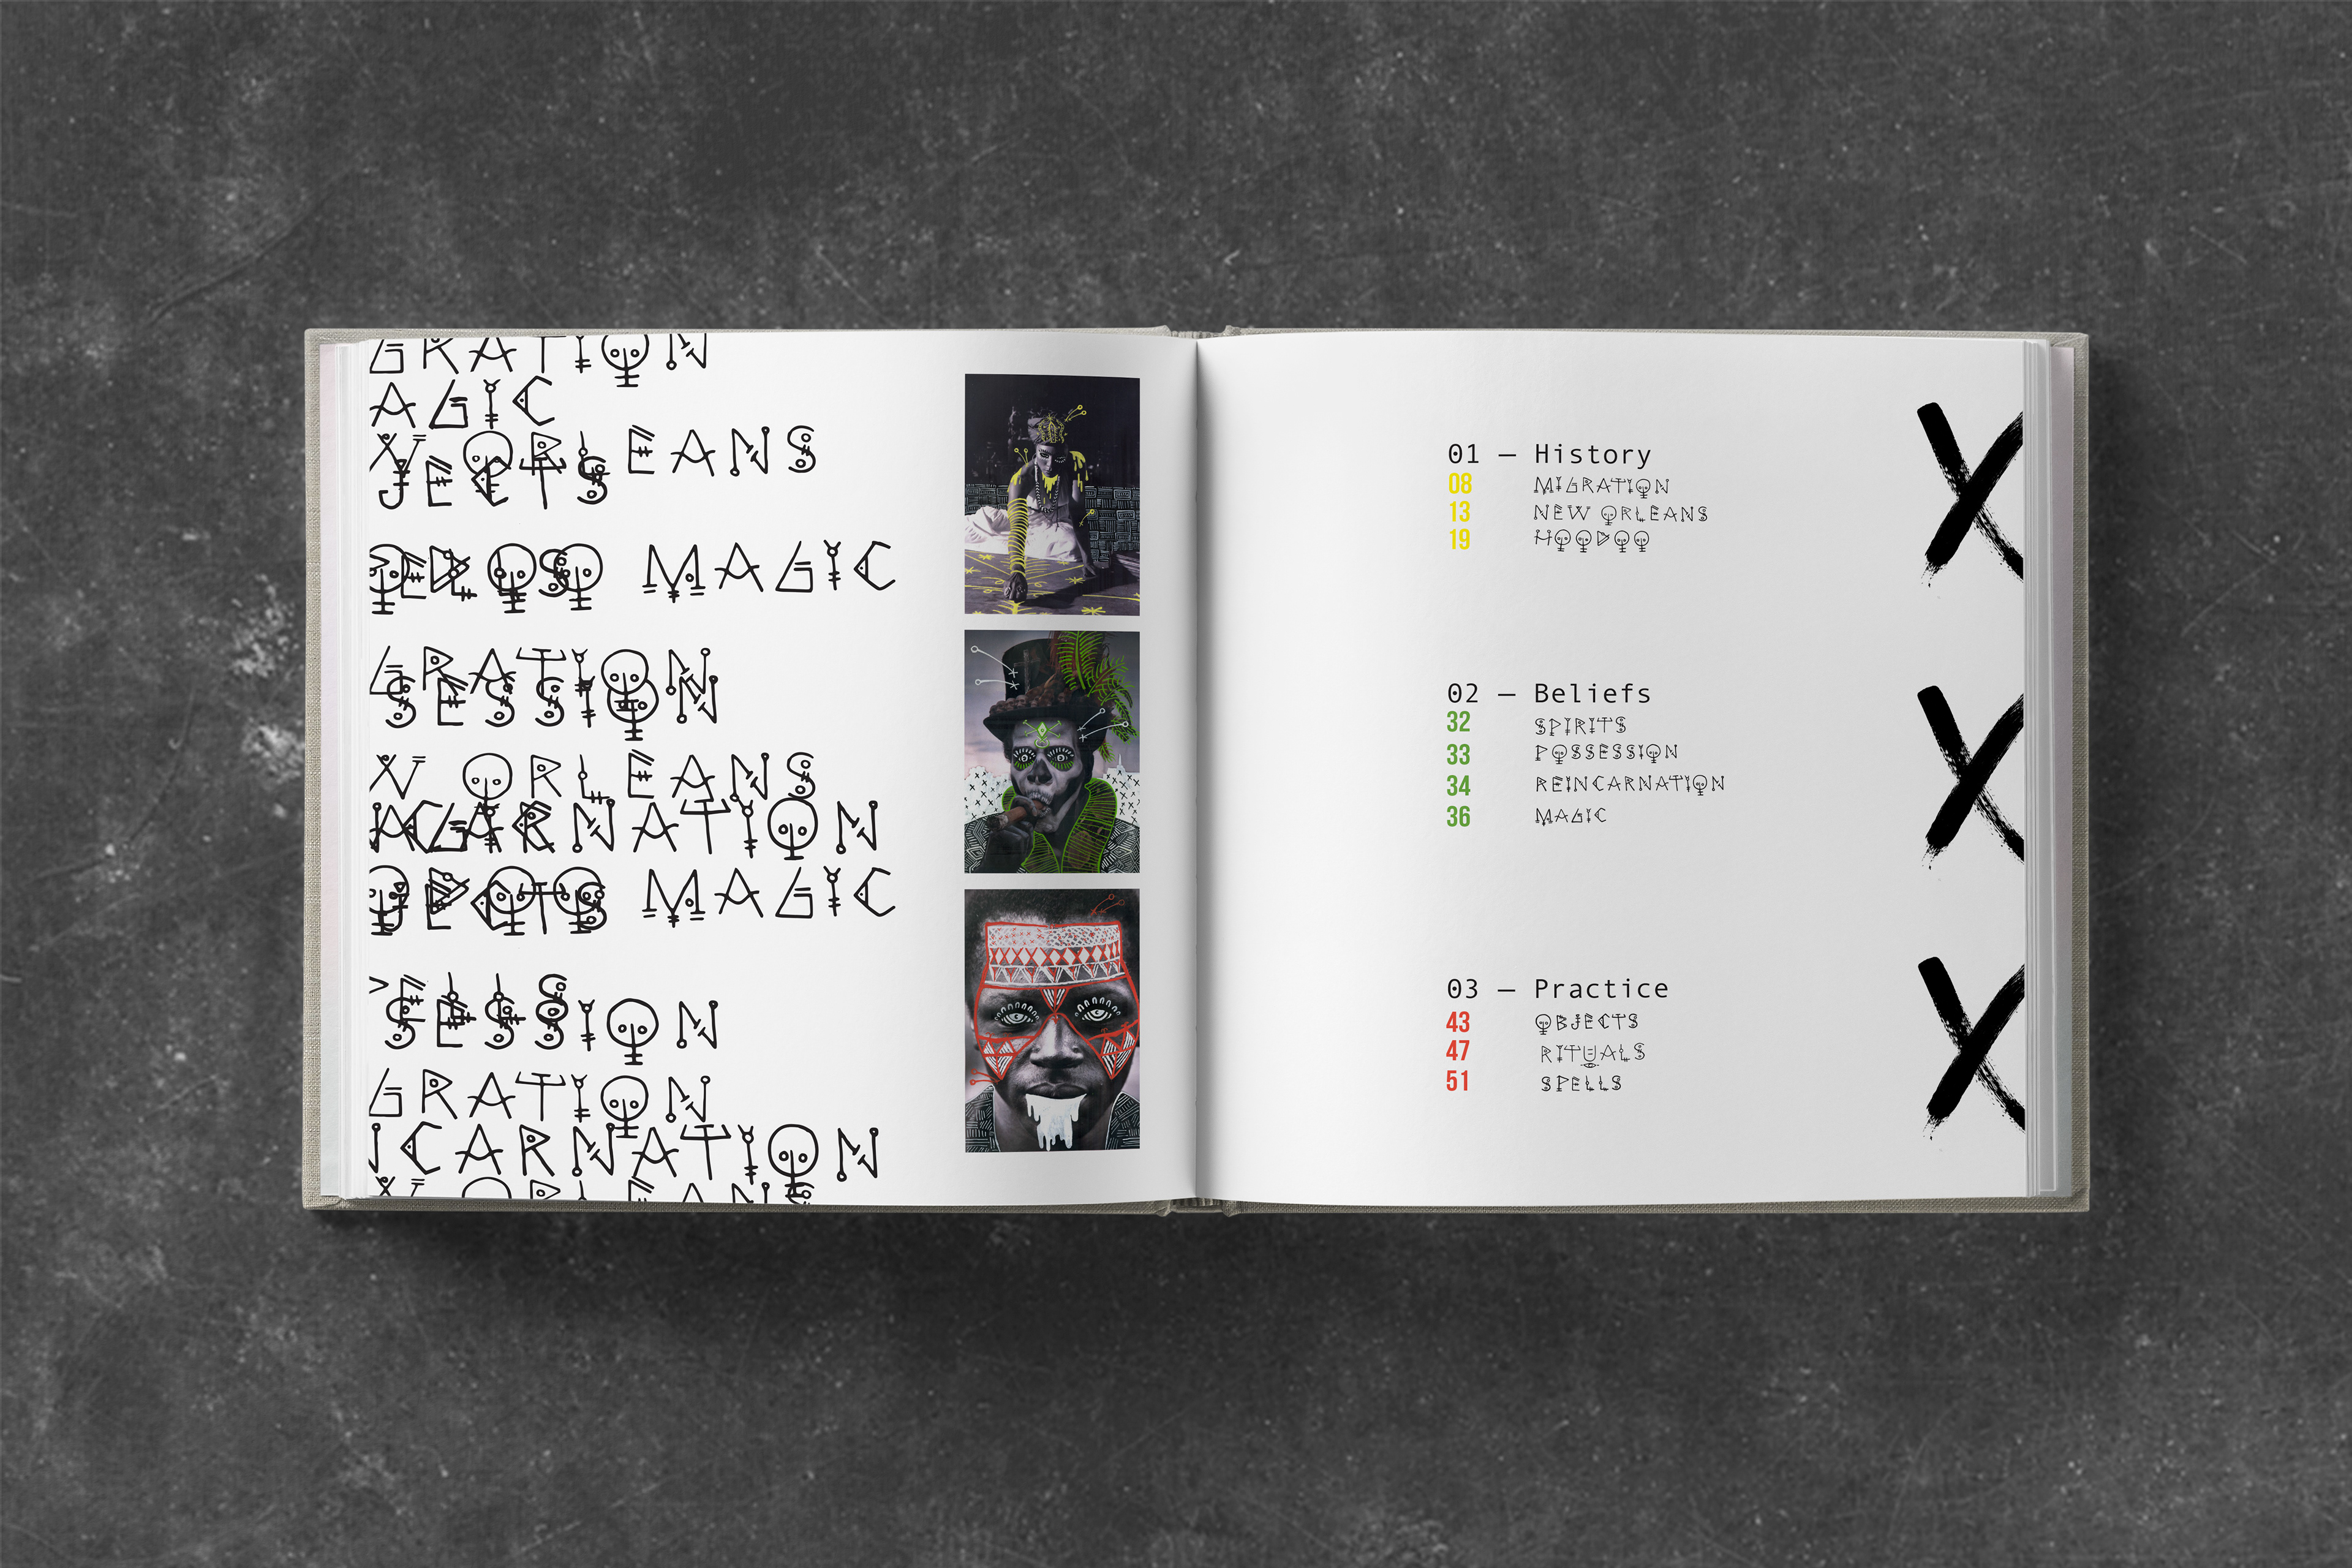 GRATION
AGIC
ORLEANS
JECTS
MAGIC
GRATION
SESSION
ORLEANS
CARNATION
MAGIC
SESSION
GRATION
CARNATION
01 – History
08 MIGRATION
13 NEW ORLEANS
19 HOODOO
02 – Beliefs
32 SPIRITS
33 POSSESSION
34 REINCARNATION
36 MAGIC
03 – Practice
43 OBJECTS
47 RITUALS
51 SPELLS